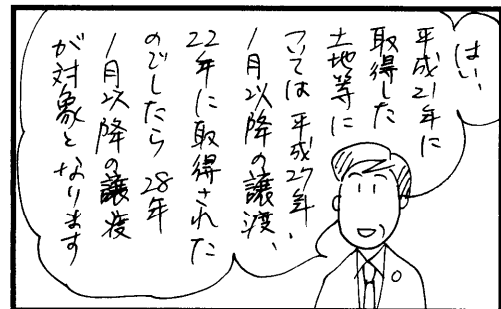 はい、
平成21年に
取得した
土地等に
ついては平成27年
1月以降の譲渡、
22年に取得された
のでしたら28年
1月以降の譲渡
が対象となります